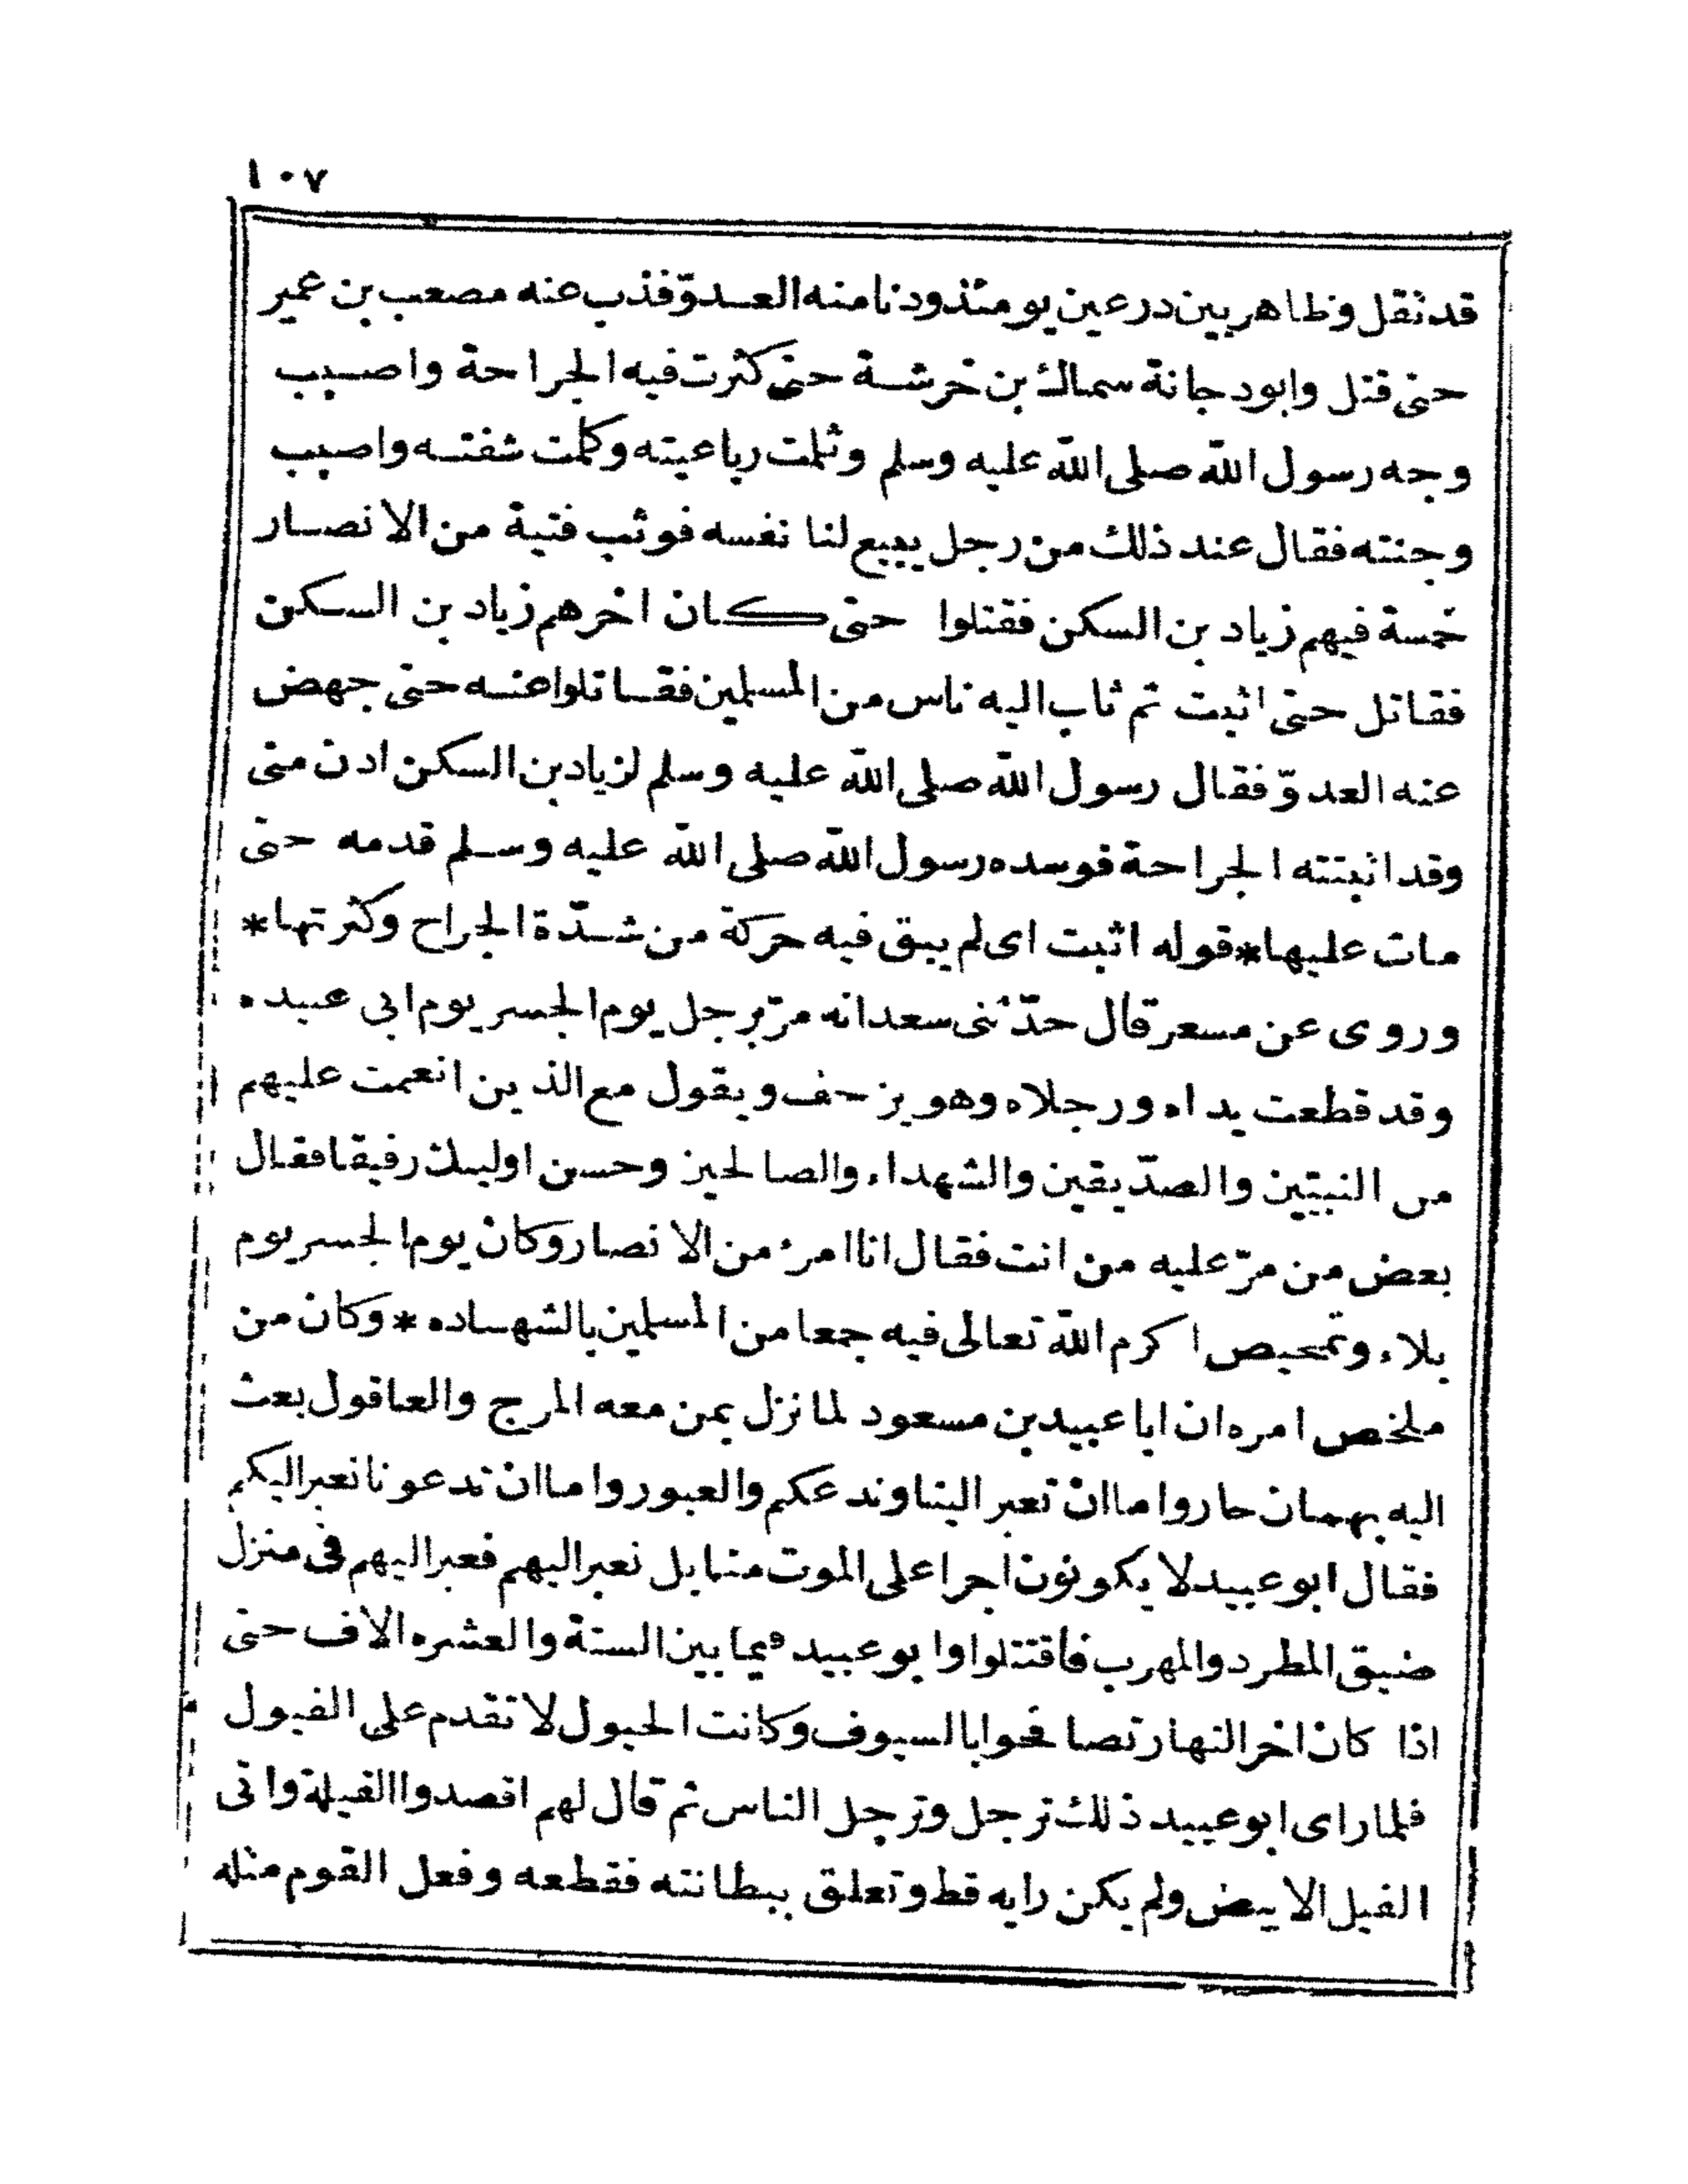 ١٠٧
قد نقل وظاهر بين درعين يومئذ ودنا منه العدوّ فذب عنه مصعب بن عمير
حتى قتل وابو دجانة سماك بن خرشة حتى كثرت فيه الجراحة واصيب
وجه رسول الله صلى الله عليه وسلم وثلمت رباعيته وكلمت شفته واصيب
وجنته فقال عند ذلك من رجل يبيع لنا نفسه فوثب فتية من الانصار
خمسة فيهم زياد بن السكن فقتلوا حتى كان اخرهم زياد بن السكن
فقاتل حتى اثبت ثم ثاب اليه ناس من المسلمين فقاتلوا عنه حتى جهض
عنه العدوّ فقال رسول الله صلى الله عليه وسلم لزياد بن السكن ادن منى
وقد اثبتته الجراحة فوسده رسول الله صلى الله عليه وسلم قدمه حتى
مات عليها * قوله اثبت اى لم يبق فيه حركة من شدّة الجراح وكثرتها *
وروى عن مسعر قال حدّثنى سعد انه مرّ برجل يوم الجسر يوم ابى عبيده
وقد قطعت يداه ورجلاه وهو يزحف ويقول مع الذين انعمت عليهم
من النبيّين والصدّيقين والشهداء والصالحين وحسن اوليك رفيقا فقال
بعض من مرّ عليه من انت فقال انا امرء من الانصار وكان يوم الجسر يوم
بلاء وتمحيص اكرم الله تعالى فيه جمعا من المسلمين بالشهاده * وكان من
ملخص امره ان ابا عبيد بن مسعود لما نزل بمن معه المرج والعاقول بعث
اليه بهمان حاروا ما ان تعبر الينا وندعكم والعبور واما ان تدعونا نعبر اليكم
فقال ابو عبيد لا يكونون اجرا على الموت منا بل نعبر اليهم فعبر اليهم فى منزل
ضيق المطرد والمهرب فاقتتلوا وابو عبيد فيما بين الستة والعشره الاف حتى
اذا كان اخر النهار تصافحوا بالسيوف وكانت الخيول لا تقدم على الفيول
فلما راى ابو عبيد ذلك ترجل وترجل الناس ثم قال لهم اقصدوا الفيلة واتى
الفيل الابيض ولم يكن رايه قط وتعلق ببطانته فقطعه وفعل القوم مثله